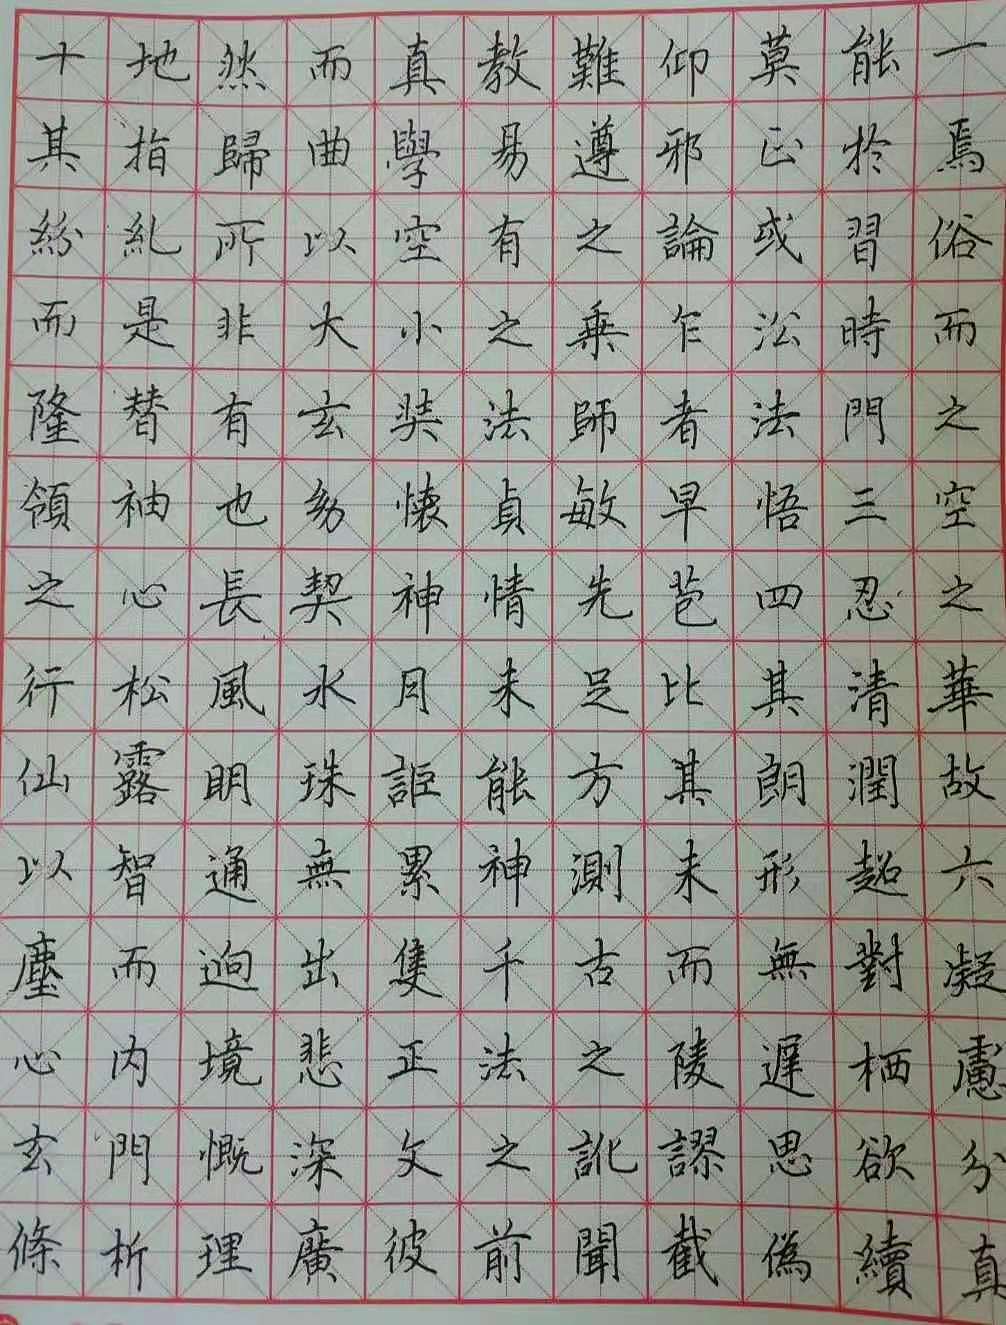 十地然而真教難仰莫能一
其指歸曲學易遵邪正於焉
紛糺所以空有之論或習俗
而是非大小之乗乍沿時而
隆替有玄奘法師者法門之
領袖也幼懐貞敏早悟三空
之心長契神情先苞四忍之
行松風水月未足比其清華
仙露明珠詎能方其朗潤故
以智通無累神測未形超六
塵而逈出隻千古而無對凝
心内境悲正法之陵遲栖慮
玄門慨深文之訛謬思欲分
條析理廣彼前聞截偽續真